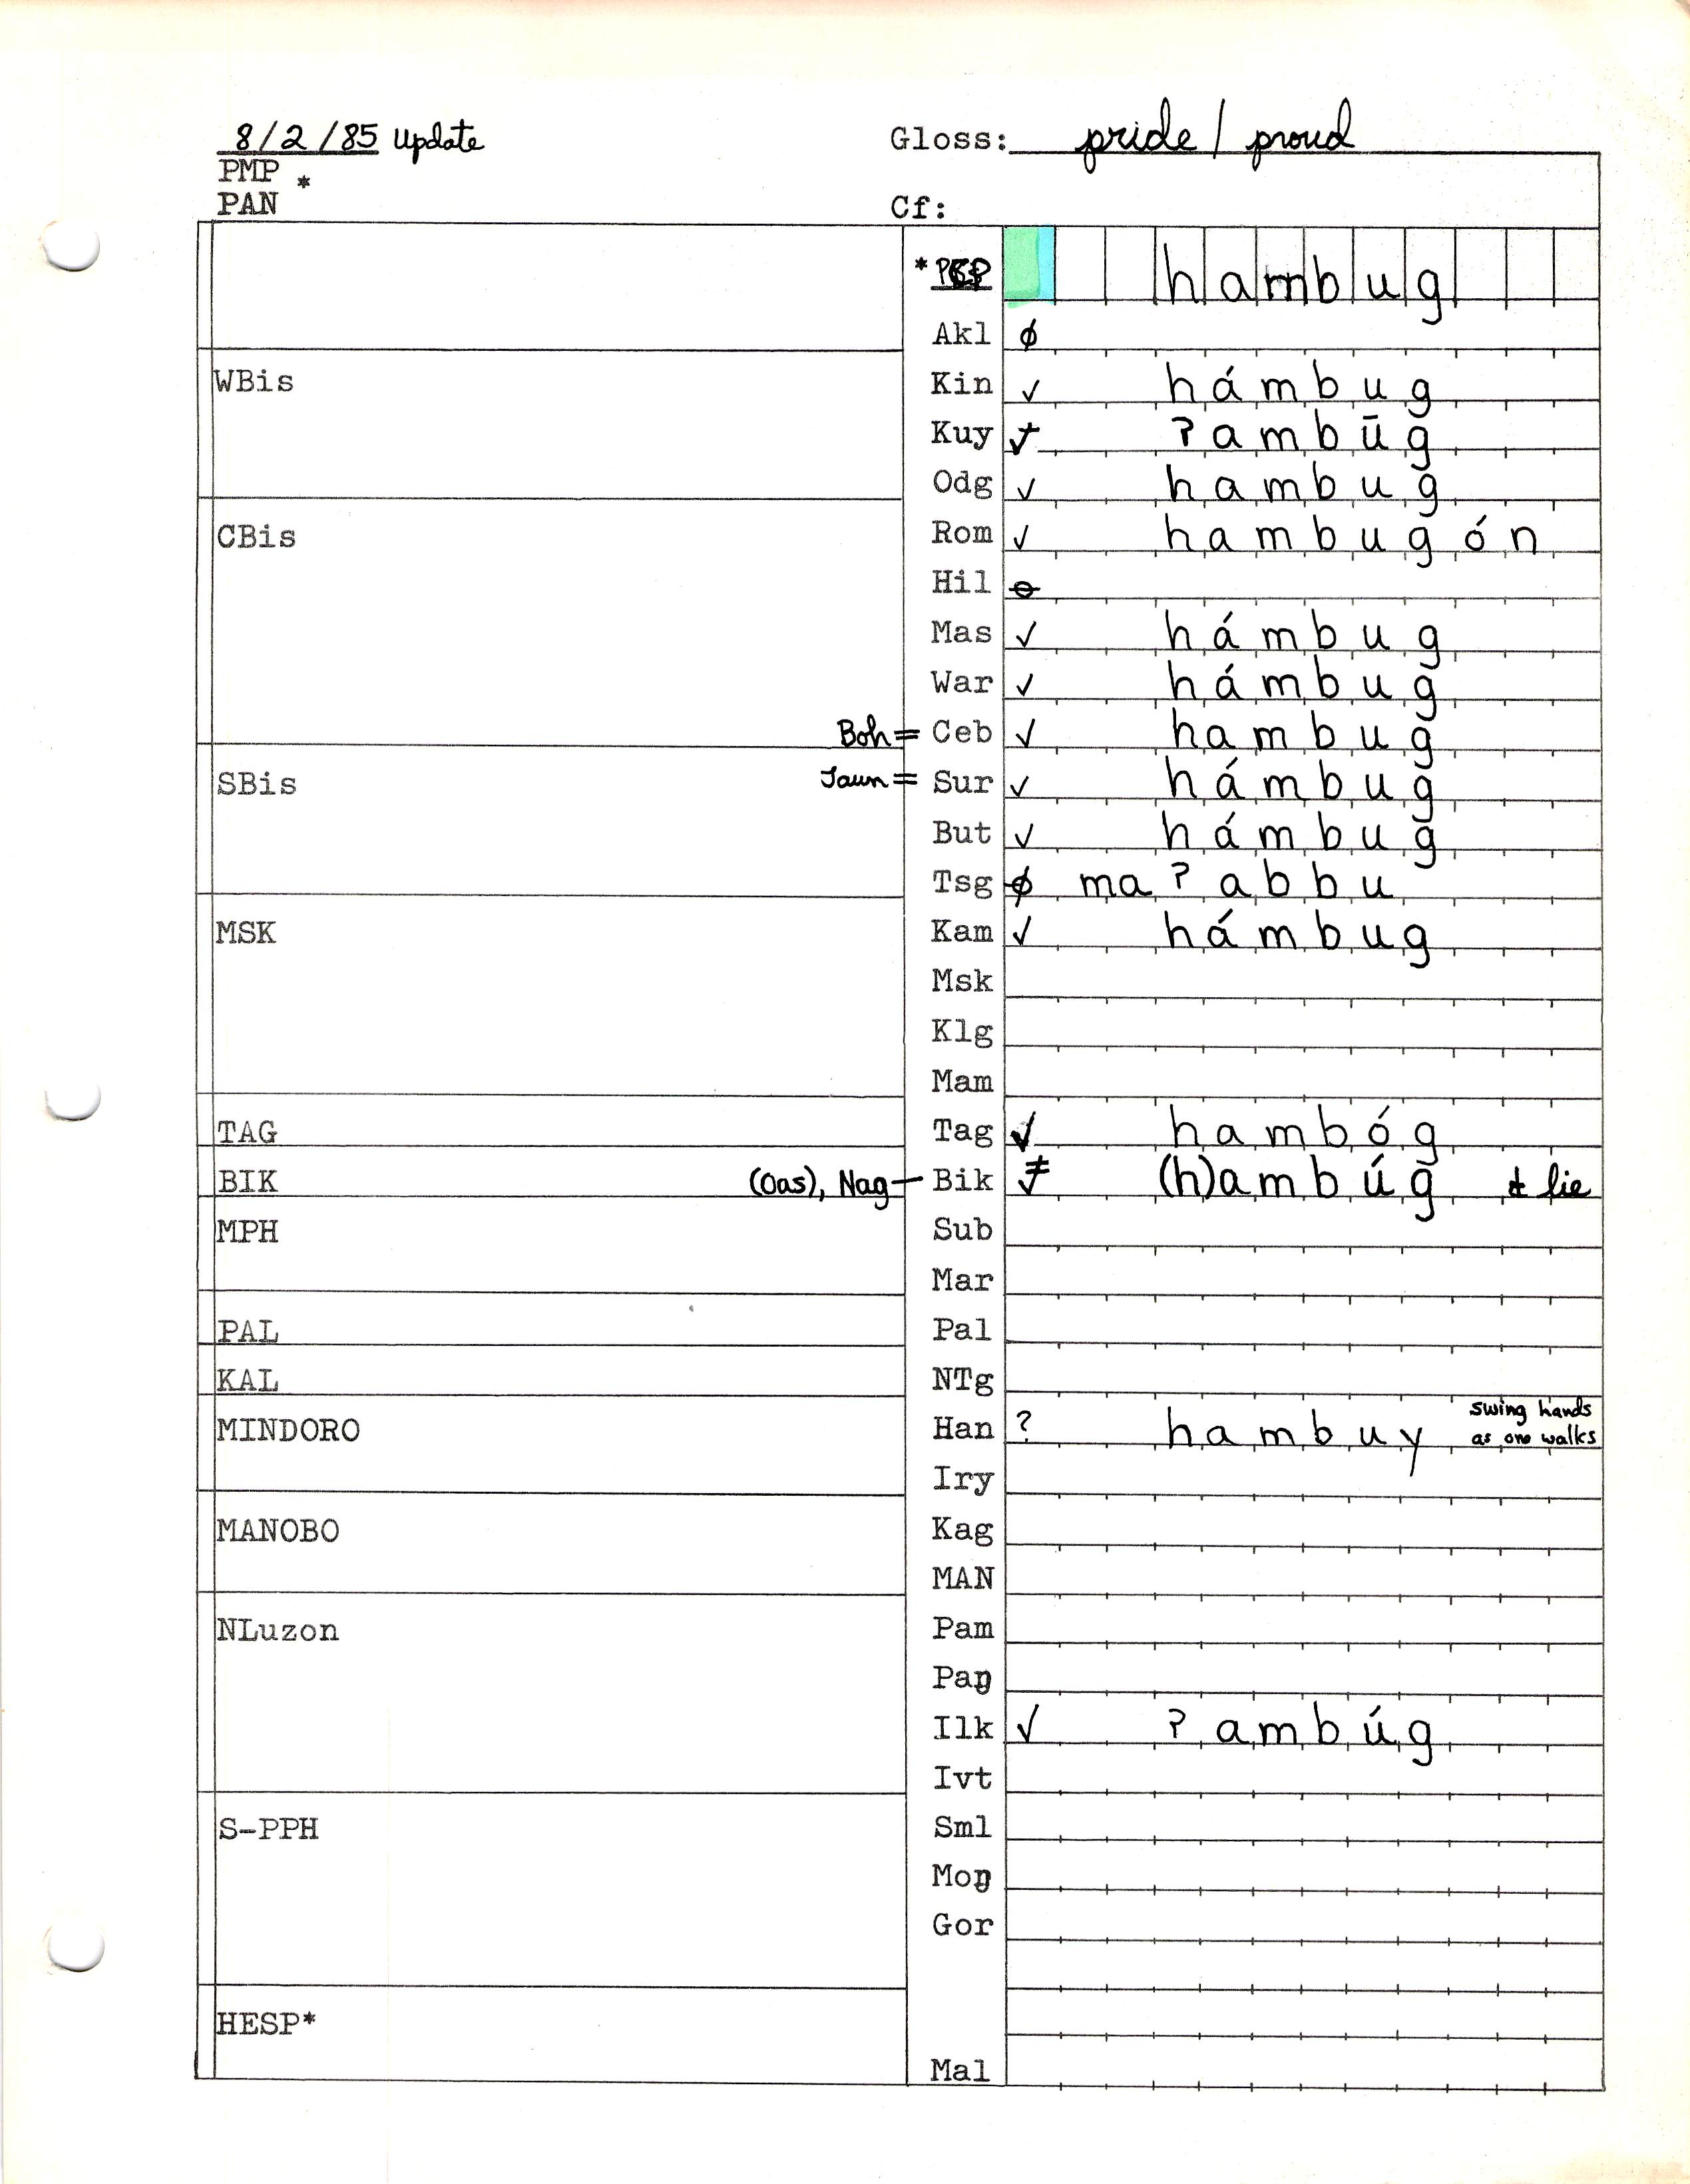 8/2/85 Update Gloss: pride / proud
PMP *
PAN Cf:
* hambug
Akl ∅
WBis Kin ✓ hámbug
Kuy ✓ ʔambūg
Odg ✓ hambug
CBis Rom ✓ hambugón
Hil ⊖
Mas ✓ hámbug
War ✓ hámbug
Boh = Ceb ✓ hambug
SBis Jaun = Sur ✓ hámbug
But ✓ hámbug
Tsg ∅ maʔabbu
MSK Kam ✓ hámbug
Msk
Klg
Mam
TAG Tag ✓ hambóg
BIK (Oas), Nag — Bik (h)ambúg ± lie
MPH Sub
Mar
PAL Pal
KAL NTg
MINDORO Han ? hambuy swing hands as one walks
Iry
MANOBO Kag
MAN
NLuzon Pam
Paŋ
Ilk ✓ ʔambúg
Ivt
S-PPH Sml
Moŋ
Gor
HESP*
Mal